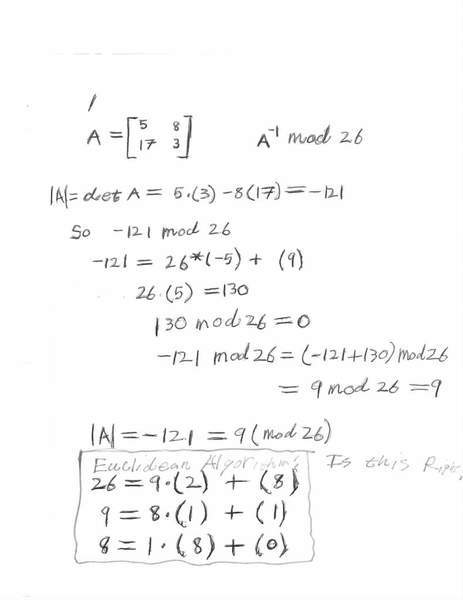 1
A = [5 8
17 3] A⁻¹ mod 26
|A| = det A = 5·(3) - 8(17) = -121
So -121 mod 26
-121 = 26*(-5) + (9)
26·(5) = 130
130 mod 26 = 0
-121 mod 26 = (-121+130) mod 26
= 9 mod 26 = 9
|A| = -121 = 9 (mod 26)
Euclidean Algorithm Is this
26 = 9·(2) + (8)
9 = 8·(1) + (1)
8 = 1·(8) + (0)